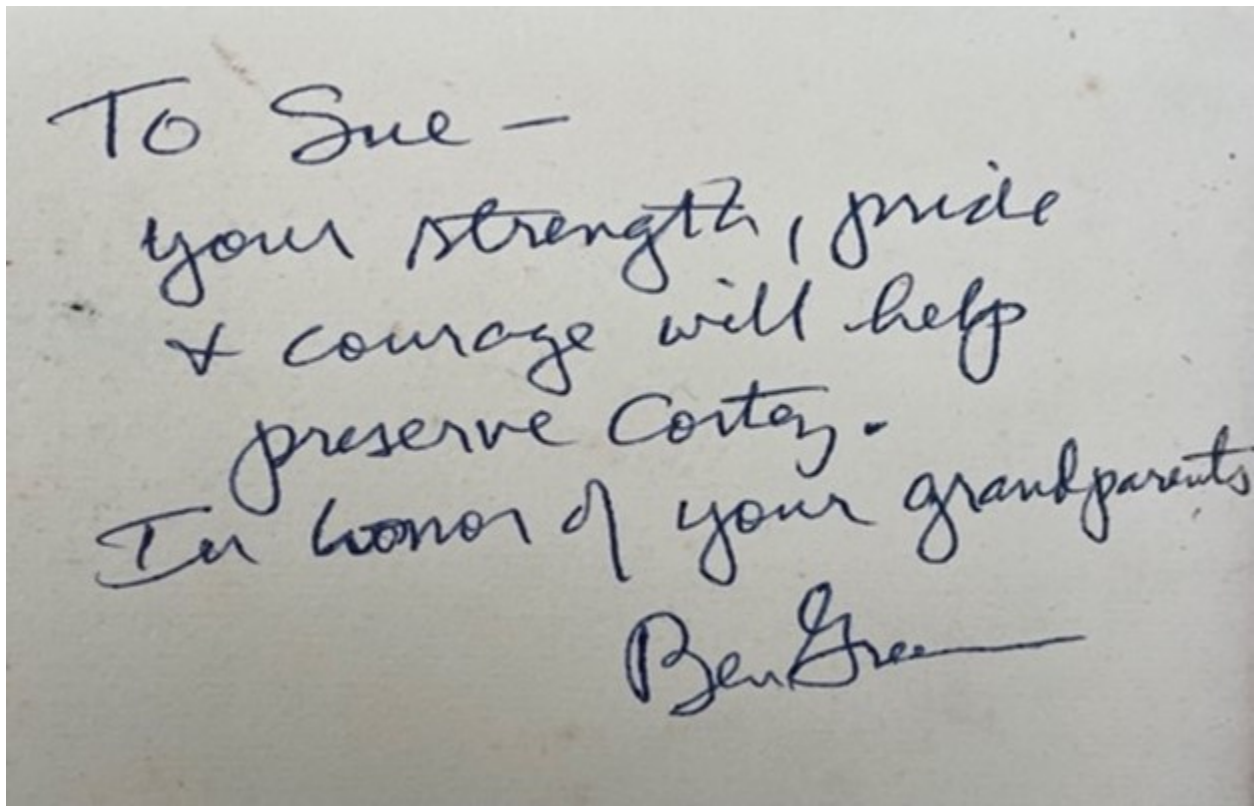 To Sue —
your strength, pride
& courage will help
preserve Cortez.
In honor of your grandparents
Ben Green